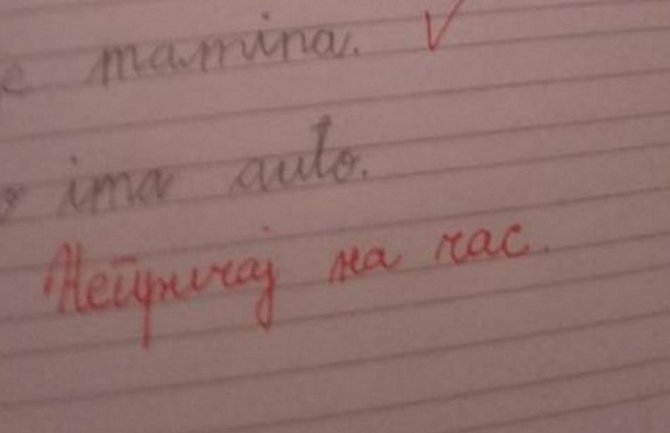 e mamina.
o ima auto.
Непричај на час.